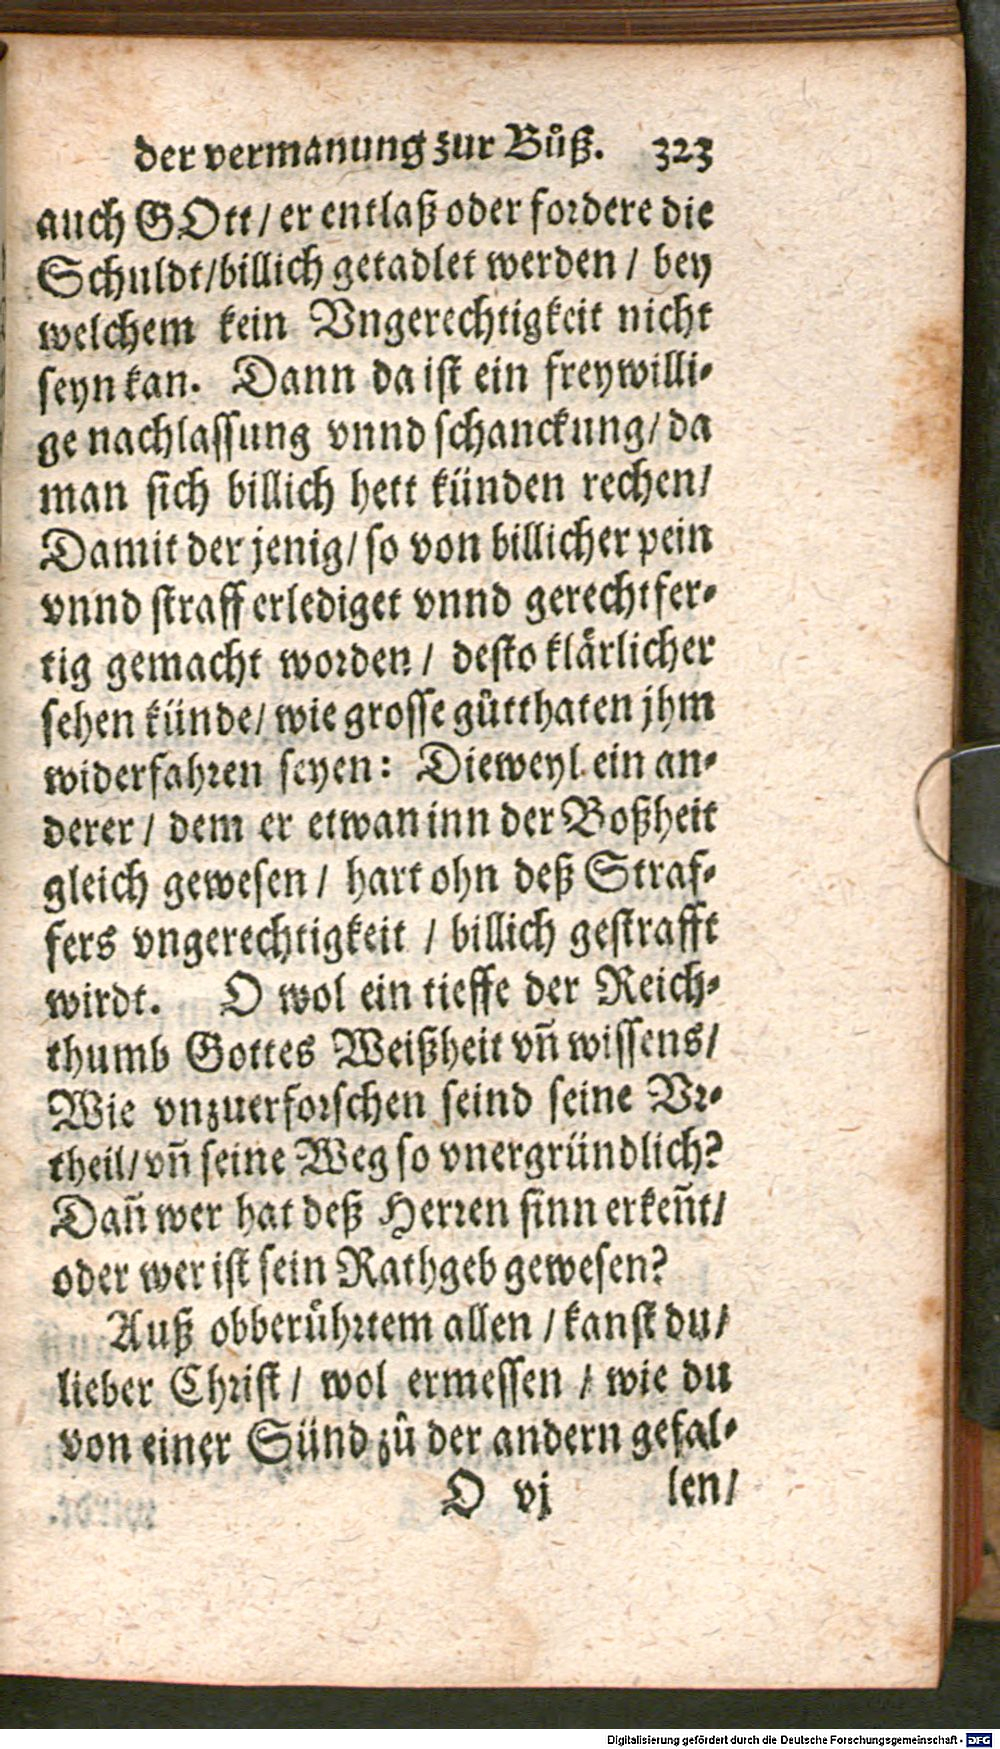 der vermanung zur Bůß. 323
auch GOtt/ er entlaß oder fordere die
Schuldt/ billich getadlet werden / bey
welchem kein Vngerechtigkeit nicht
seyn kan. Dann da ist ein freywilli-
ge nachlassung vnnd schanckung/ da
man sich billich hett künden rechen/
Damit der jenig/ so von billicher pein
vnnd straff erlediget vnnd gerechtfer-
tig gemacht worden / desto klärlicher
sehen künde/ wie grosse gůtthaten jhm
widerfahren seyen: Dieweyl ein an-
derer / dem er etwan inn der Boßheit
gleich gewesen / hart ohn deß Straf-
fers vngerechtigkeit / billich gestrafft
wirdt. O wol ein tieffe der Reich-
thumb Gottes Weißheit vñ wissens/
Wie vnzuerforschen seind seine Vr-
theil/ vñ seine Weg so vnergründlich?
Dañ wer hat deß Herren sinn erkeñt/
oder wer ist sein Rathgeb gewesen?
Auß obberührtem allen / kanst du/
lieber Christ / wol ermessen / wie du
von einer Sünd zů der andern gefal-
O vj len/
Digitalisierung gefördert durch die Deutsche Forschungsgemeinschaft - DFG